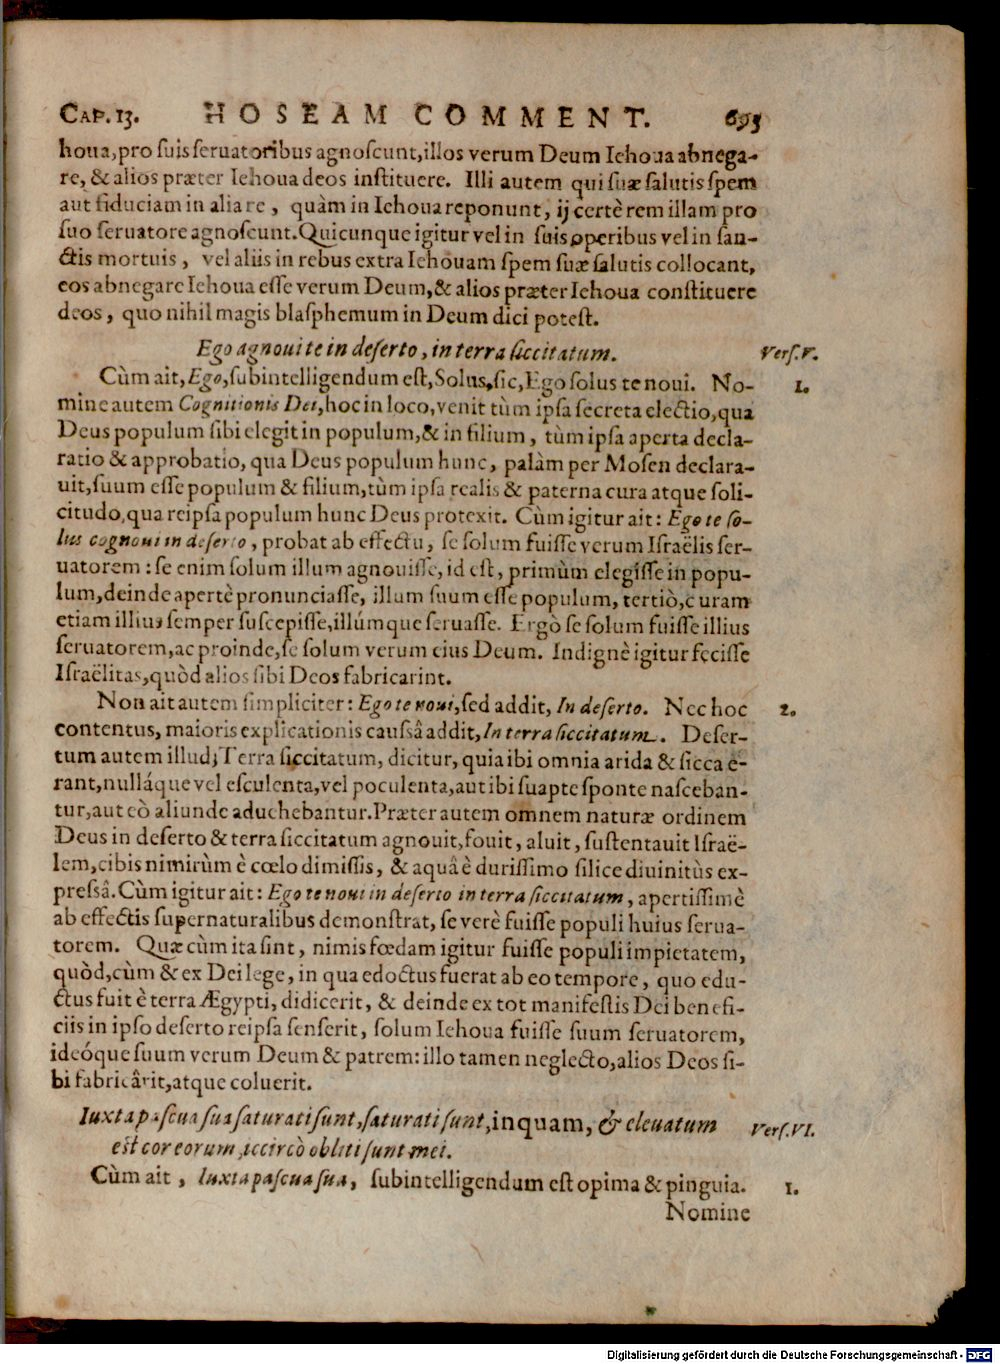 CAP. 13. HOSEAM COMMENT. 693
houa, pro suis seruatoribus agnoscunt, illos verum Deum Iehoua abnega-
re, & alios præter Iehoua deos instituere. Illi autem qui suæ salutis spem
aut fiduciam in alia re, quàm in Iehoua reponunt, ij certè rem illam pro
suo seruatore agnoscunt. Quicunque igitur vel in suis operibus vel in san-
ctis mortuis, vel aliis in rebus extra Iehouam spem suæ salutis collocant,
eos abnegare Iehoua esse verum Deum, & alios præter Iehoua constituere
deos, quo nihil magis blasphemum in Deum dici potest.
Ego agnoui te in deserto, in terra siccitatum. Vers. V.
Cùm ait, Ego, subintelligendum est, Solus, sic, Ego solus te noui. No- 1.
mine autem Cognitionis Dei, hoc in loco, venit tùm ipsa secreta electio, qua
Deus populum sibi elegit in populum, & in filium, tùm ipsa aperta decla-
ratio & approbatio, qua Deus populum hunc, palàm per Mosen declara-
uit, suum esse populum & filium, tùm ipsa realis & paterna cura atque soli-
citudo, qua reipsa populum hunc Deus protexit. Cùm igitur ait: Ego te so-
lus cognoui in deserto, probat ab effectu, se solum fuisse verum Israëlis ser-
uatorem: se enim solum illum agnouisse, id est, primùm elegisse in popu-
lum, deinde apertè pronunciasse, illum suum esse populum, tertiò, curam
etiam illius semper suscepisse, illúmque seruasse. Ergò se solum fuisse illius
seruatorem, ac proinde, se solum verum eius Deum. Indignè igitur fecisse
Israëlitas, quòd alios sibi Deos fabricarint.
Non ait autem simpliciter: Ego te noui, sed addit, In deserto. Nec hoc 2.
contentus, maioris explicationis caussâ addit, In terra siccitatum. Deser-
tum autem illud, Terra siccitatum, dicitur, quia ibi omnia arida & sicca e-
rant, nulláque vel esculenta, vel poculenta, aut ibi suapte sponte nasceban-
tur, aut eò aliunde aduehebantur. Præter autem omnem naturæ ordinem
Deus in deserto & terra siccitatum agnouit, fouit, aluit, sustentauit Israë-
lem, cibis nimirùm è cœlo dimissis, & aquâ è durissimo silice diuinitùs ex-
pressâ. Cùm igitur ait: Ego te noui in deserto in terra siccitatum, apertissimè
ab effectis supernaturalibus demonstrat, se verè fuisse populi huius serua-
torem. Quæ cùm ita sint, nimis fœdam igitur fuisse populi impietatem,
quòd, cùm & ex Dei lege, in qua edoctus fuerat ab eo tempore, quo edu-
ctus fuit è terra Ægypti, didicerit, & deinde ex tot manifestis Dei benefi-
ciis in ipso deserto reipsa senserit, solum Iehoua fuisse suum seruatorem,
ideóque suum verum Deum & patrem: illo tamen neglecto, alios Deos si-
bi fabricârit, atque coluerit.
Iuxta pascua sua saturati sunt, saturati sunt, inquam, & eleuatum Vers. VI.
est cor eorum, iccircò obliti sunt mei.
Cùm ait, Iuxta pascua sua, subintelligendum est opima & pinguia. 1.
Nomine
Digitalisierung gefördert durch die Deutsche Forschungsgemeinschaft - DFG